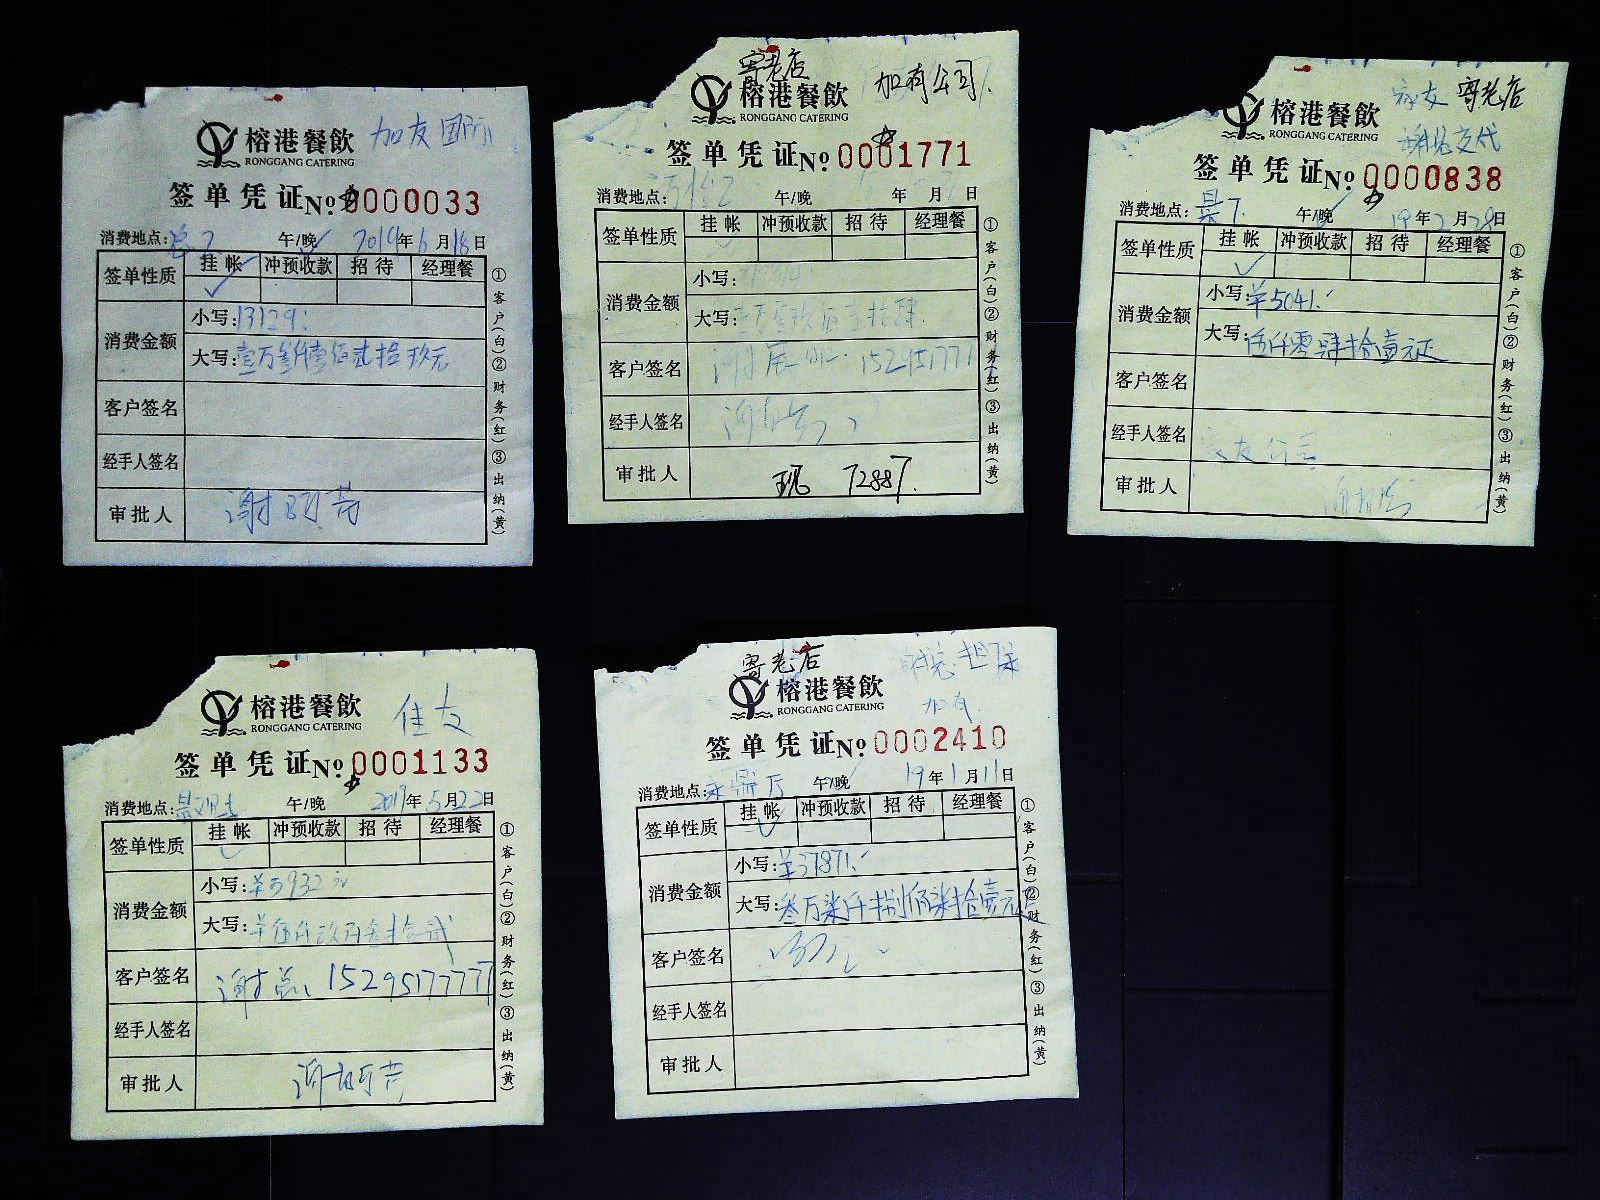 加友国际
榕港餐飲
RONGGANG CATERING
签单凭证No 0000033
消费地点: 午/晚 2019年6月18日
签单性质 挂帐 冲预收款 招待 经理餐
消费金额 小写:13129
大写:壹万叁仟壹佰贰拾玖元
客户签名
经手人签名
审批人
①客户(白)②财务(红)③出纳(黄)
寄老店
加有公司
榕港餐飲
RONGGANG CATERING
签单凭证No 0001771
消费地点: 午/晚 年 月 日
签单性质 挂帐 冲预收款 招待 经理餐
消费金额 小写:
大写:
客户签名
经手人签名
审批人 现 72887.
①客户(白)②财务(红)③出纳(黄)
寄老店
榕港餐飲
RONGGANG CATERING
签单凭证No 0000838
消费地点: 午/晚 19年2月28日
签单性质 挂帐 冲预收款 招待 经理餐
消费金额 小写:¥5041.
大写:伍仟零肆拾壹元正
客户签名
经手人签名
审批人
①客户(白)②财务(红)③出纳(黄)
佳友
榕港餐飲
RONGGANG CATERING
签单凭证No 0001133
消费地点: 午/晚 2019年5月22日
签单性质 挂帐 冲预收款 招待 经理餐
消费金额 小写:¥5932元
大写:
客户签名 谢总 15295177777
经手人签名
审批人
①客户(白)②财务(红)③出纳(黄)
寄老店
担保
加有
榕港餐飲
RONGGANG CATERING
签单凭证No 0002410
消费地点: 午/晚 19年1月11日
签单性质 挂帐 冲预收款 招待 经理餐
消费金额 小写:¥37871.
大写:叁万柒仟捌佰柒拾壹元正
客户签名
经手人签名
审批人
①客户(白)②财务(红)③出纳(黄)